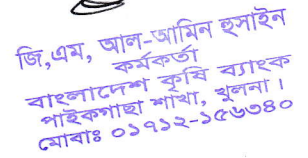 জি,এম, আল-আমিন হুসাইন
কর্মকর্তা
বাংলাদেশ কৃষি ব্যাংক
পাইকগাছা শাখা, খুলনা ।
মোবাঃ ০১৭১২-১৫৬৩৪০